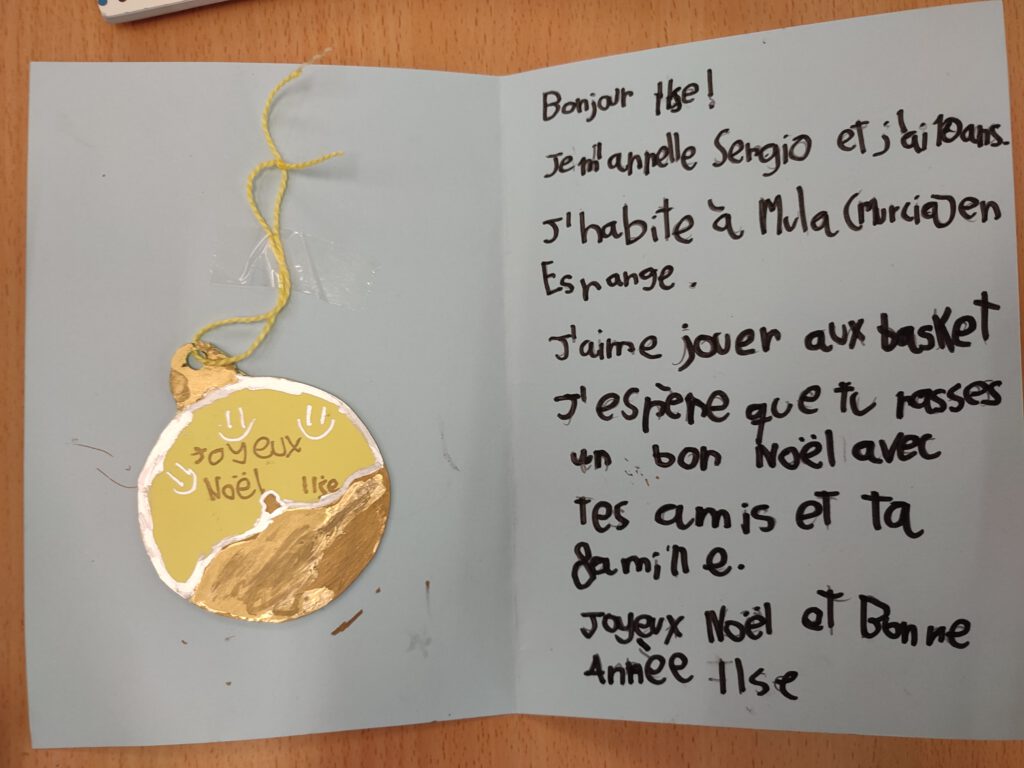 Joyeux
Noël Ilse
Bonjour Ilse!
Je m'appelle Sergio et j'ai 10 ans.
J'habite à Mula (Murcia) en
Espange.
J'aime jouer aux basket
J'espère que tu passes
un bon Noël avec
tes amis et ta
famille.
Joyeux Noël et Bonne
Annèe Ilse